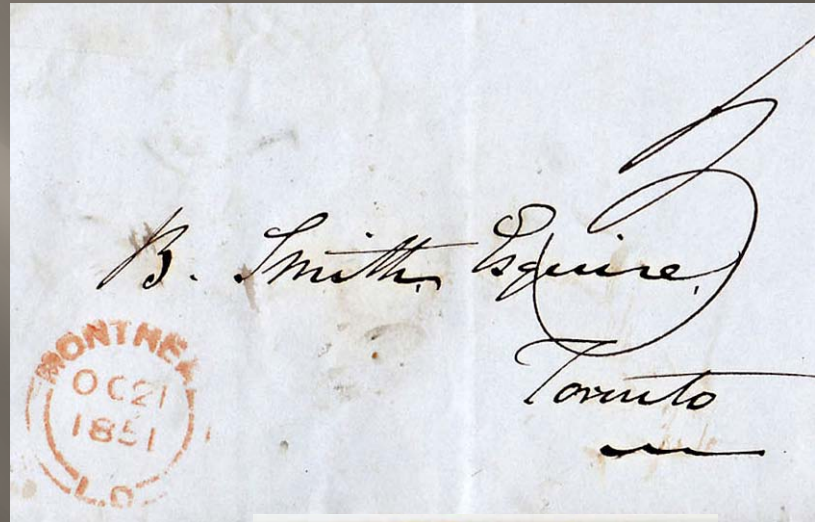 3
B. Smith, Esquire,
Toronto
MONTREAL
OC 21
1851
L.C